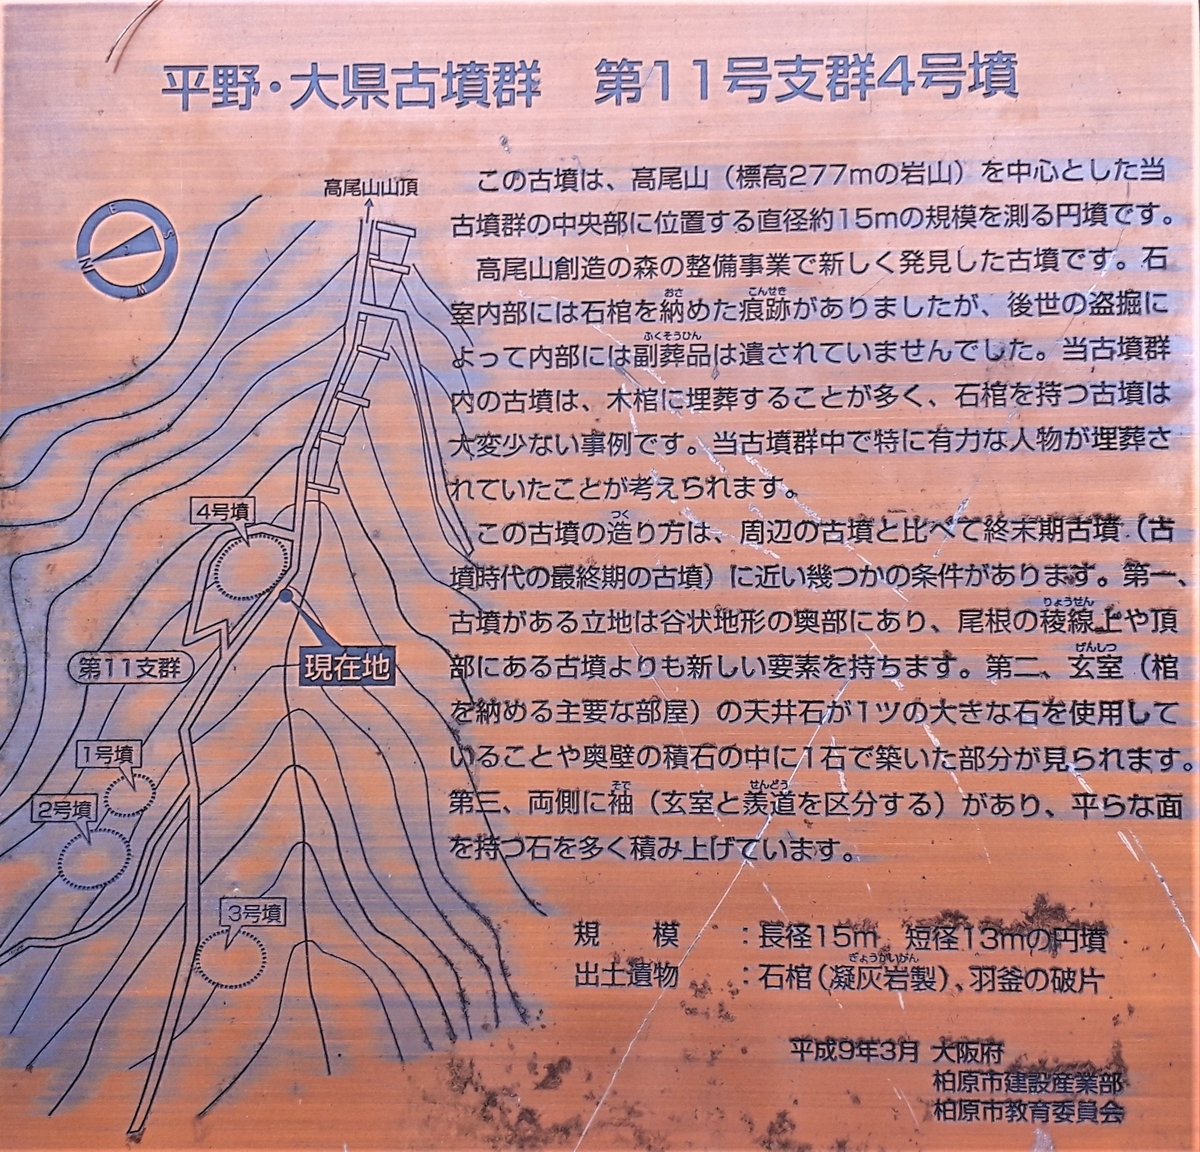 平野・大県古墳群　第11号支群4号墳
高尾山山頂
E
S
N
W
4号墳
現在地
第11支群
1号墳
2号墳
3号墳
この古墳は、高尾山（標高277mの岩山）を中心とした当
古墳群の中央部に位置する直径約15mの規模を測る円墳です。
高尾山創造の森の整備事業で新しく発見した古墳です。石
おさ　こんせき
室内部には石棺を納めた痕跡がありましたが、後世の盗掘に
ふくそうひん
よって内部には副葬品は遺されていませんでした。当古墳群
内の古墳は、木棺に埋葬することが多く、石棺を持つ古墳は
大変少ない事例です。当古墳群中で特に有力な人物が埋葬さ
れていたことが考えられます。
つく
この古墳の造り方は、周辺の古墳と比べて終末期古墳（古
墳時代の最終期の古墳）に近い幾つかの条件があります。第一、
りょうせん
古墳がある立地は谷状地形の奥部にあり、尾根の稜線上や頂
げんしつ
部にある古墳よりも新しい要素を持ちます。第二、玄室（棺
を納める主要な部屋）の天井石が1ツの大きな石を使用して
いることや奥壁の積石の中に1石で築いた部分が見られます。
そで　せんどう
第三、両側に袖（玄室と羨道を区分する）があり、平らな面
を持つ石を多く積み上げています。
規　模　：長径15m　短径13mの円墳
ぎょうかいがん
出土遺物　：石棺（凝灰岩製）、羽釜の破片
平成9年3月 大阪府
柏原市建設産業部
柏原市教育委員会